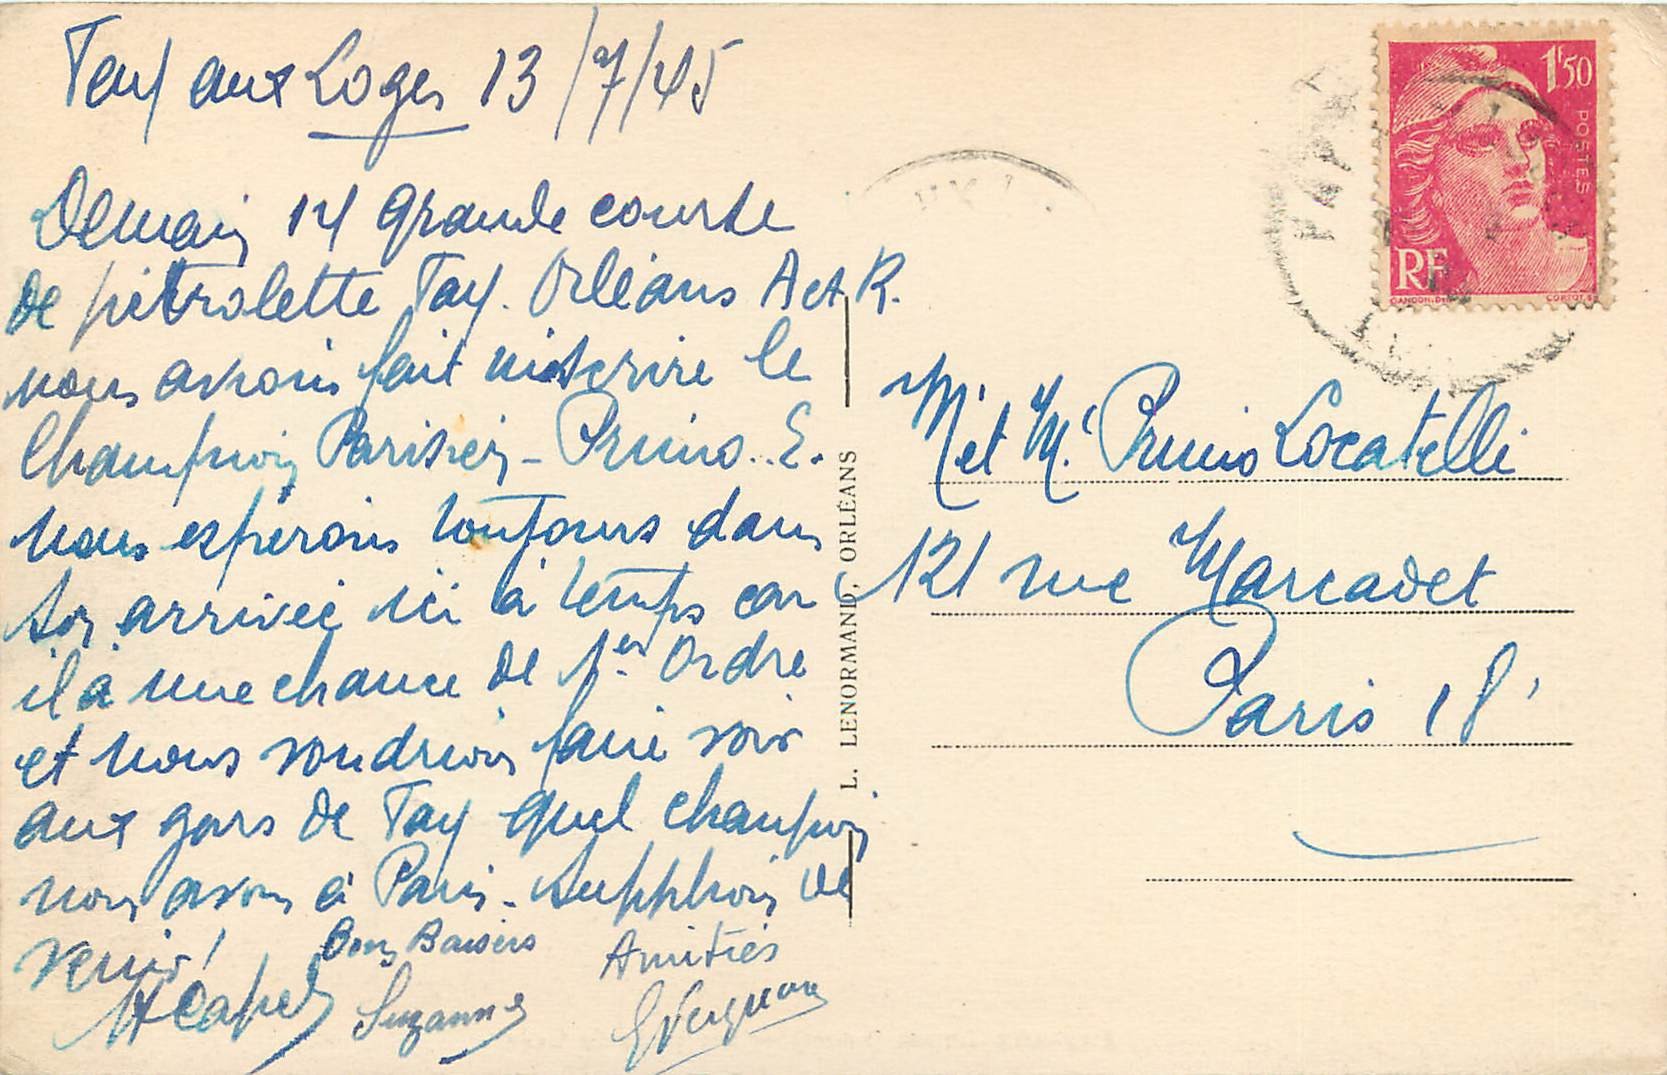 Fay aux Loges 13/7/45
Demain 14 grande course
de pétrolette Fay. Orléans A et R.
nous avons fait inscrire le
Champion Parisien - Primo. E.
nous espérons toujours dans
son arrivée ici à temps car
il a une chance de 1er Ordre
et nous voudrions faire voir
aux gars de Fay quel champion
nous avons à Paris - Supplions de
venir!
Bons Baisers
Amitiés
Suzanne
L. LENORMAND, ORLÉANS
1F50
POSTES
RF
GANDON
CORTOT
Mr et Me Primo Locatelli
121 rue Marcadet
Paris 18'